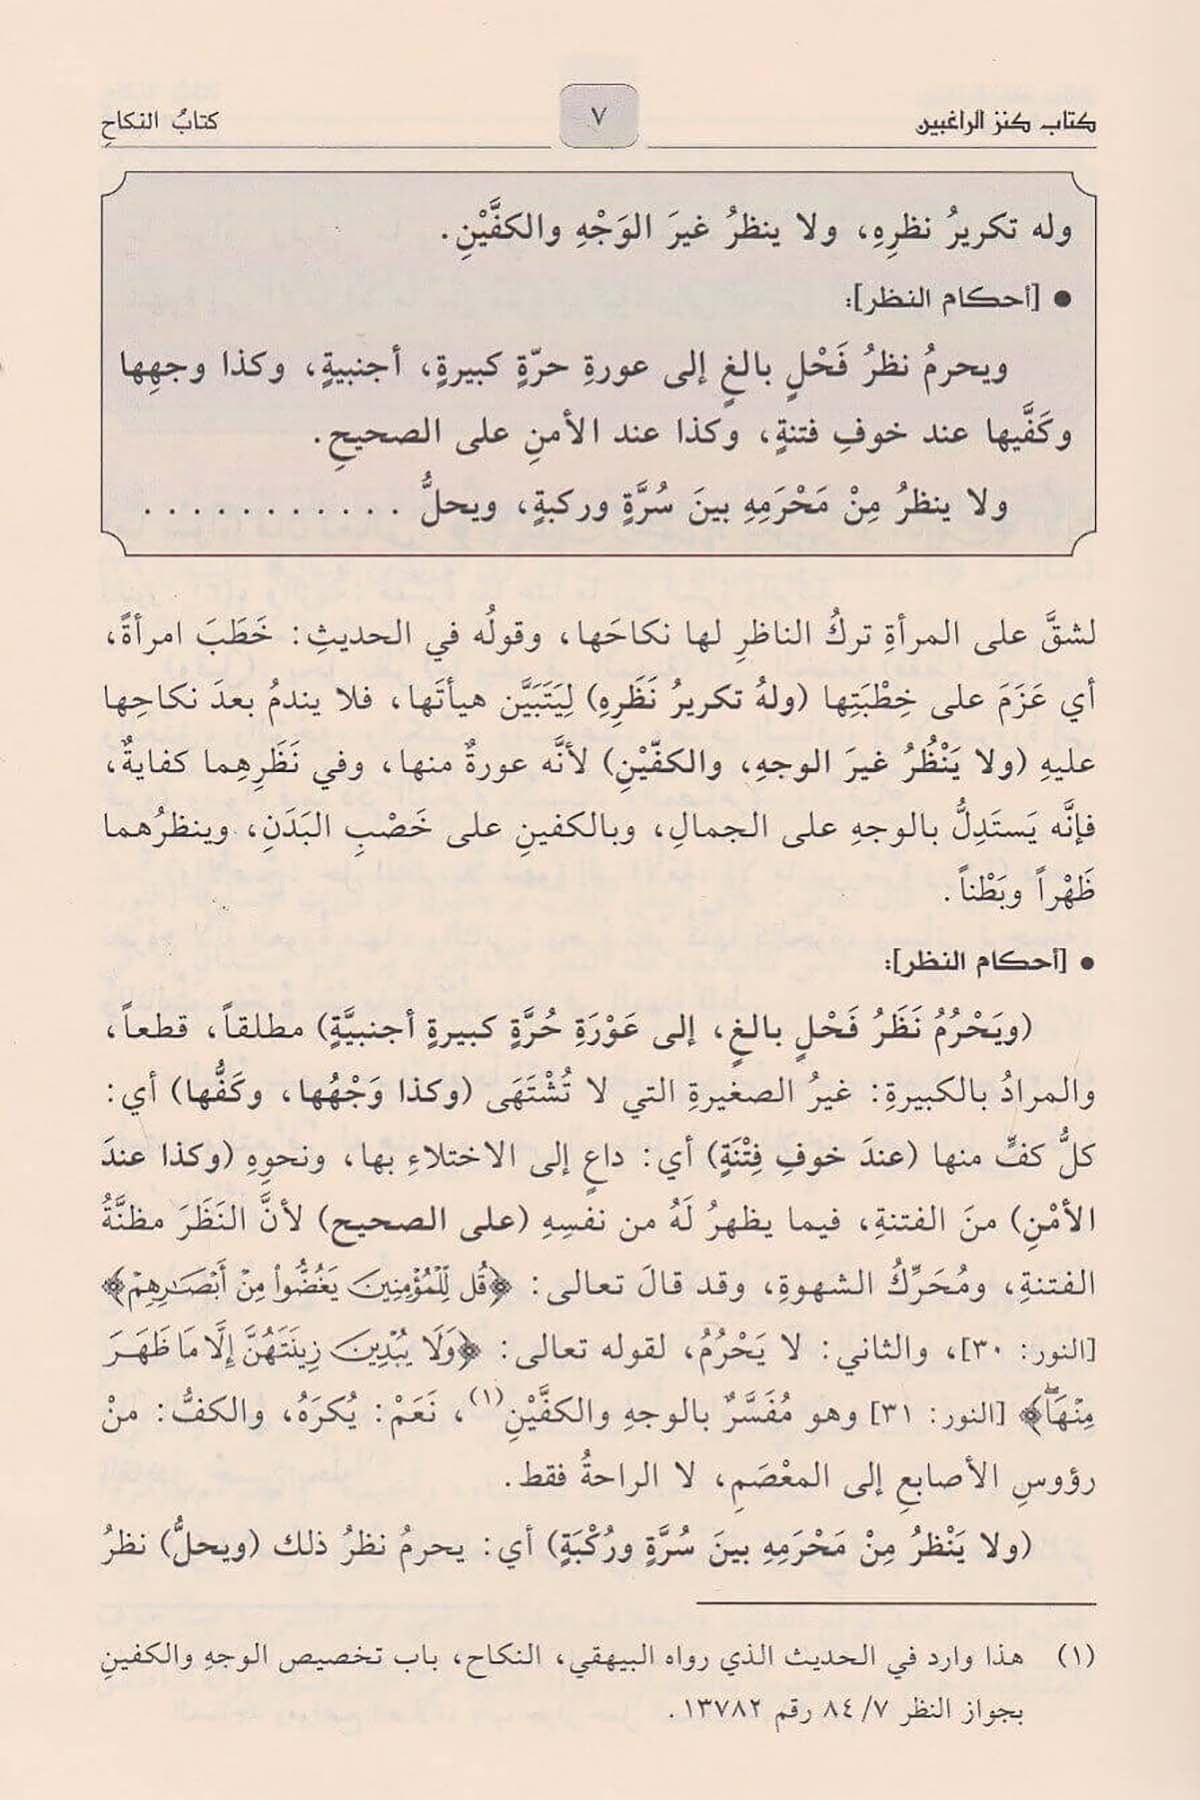 كتاب كنز الراغبين ٧ كتابُ النكاحِ
وله تكريرُ نظرِهِ، ولا ينظرُ غيرَ الوَجْهِ والكفَّيْنِ.
● [أحكام النظر]:
ويحرمُ نظرُ فَحْلٍ بالغٍ إلى عورةِ حرّةٍ كبيرةٍ، أجنبيةٍ، وكذا وجهِها
وكَفَّيها عند خوفِ فتنةٍ، وكذا عند الأمنِ على الصحيحِ.
ولا ينظرُ مِنْ مَحْرَمِهِ بينَ سُرَّةٍ وركبةٍ، ويحلُّ . . . . . . . . . . .
لشقَّ على المرأةِ تركُ الناظرِ لها نكاحَها، وقولُه في الحديثِ: خَطَبَ امرأةً،
أي عَزَمَ على خِطْبَتِها (ولهُ تكريرُ نَظَرِهِ) لِيَتَبَيَّن هيأتَها، فلا يندمُ بعدَ نكاحِها
عليهِ (ولا يَنْظُرُ غيرَ الوجهِ، والكفّيْنِ) لأنَّه عورةٌ منها، وفي نَظَرِهِما كفايةٌ،
فإنَّه يَستَدِلُّ بالوجهِ على الجمالِ، وبالكفينِ على خَصْبِ البَدَنِ، وينظرُهما
ظَهْراً وبَطْناً.
● [أحكام النظر]:
(ويَحْرُمُ نَظَرُ فَحْلٍ بالغٍ، إلى عَوْرَةِ حُرَّةٍ كبيرةٍ أجنبيَّةٍ) مطلقاً، قطعاً،
والمرادُ بالكبيرةِ: غيرُ الصغيرةِ التي لا تُشْتَهَى (وكذا وَجْهُها، وكَفُّها) أي:
كلُّ كفٍّ منها (عندَ خوفِ فِتْنَةٍ) أي: داعٍ إلى الاختلاءِ بها، ونحوِهِ (وكذا عندَ
الأمْنِ) منَ الفتنةِ، فيما يظهرُ لَهُ من نفسِهِ (على الصحيح) لأنَّ النَظَرَ مظنَّةُ
الفتنةِ، ومُحَرِّكُ الشهوةِ، وقد قالَ تعالى: ﴿قُل لِّلْمُؤْمِنِينَ يَغُضُّوا۟ مِنْ أَبْصَـٰرِهِمْ﴾
[النور: ٣٠]، والثاني: لا يَحْرُمُ، لقوله تعالى: ﴿وَلَا يُبْدِينَ زِينَتَهُنَّ إِلَّا مَا ظَهَرَ
مِنْهَا ۖ﴾ [النور: ٣١] وهو مُفَسَّرٌ بالوجهِ والكفَّيْنِ(١)، نَعَمْ: يُكرَهُ، والكفُّ: منْ
رؤوسِ الأصابعِ إلى المعْصَمِ، لا الراحةُ فقط.
(ولا يَنْظرُ مِنْ مَحْرَمِهِ بينَ سُرَّةٍ ورُكْبَةٍ) أي: يحرمُ نظرُ ذلك (ويحلُّ) نظرُ
(١) هذا وارد في الحديث الذي رواه البيهقي، النكاح، باب تخصيص الوجهِ والكفينِ
بجواز النظر ٨٤/٧ رقم ١٣٧٨٢.